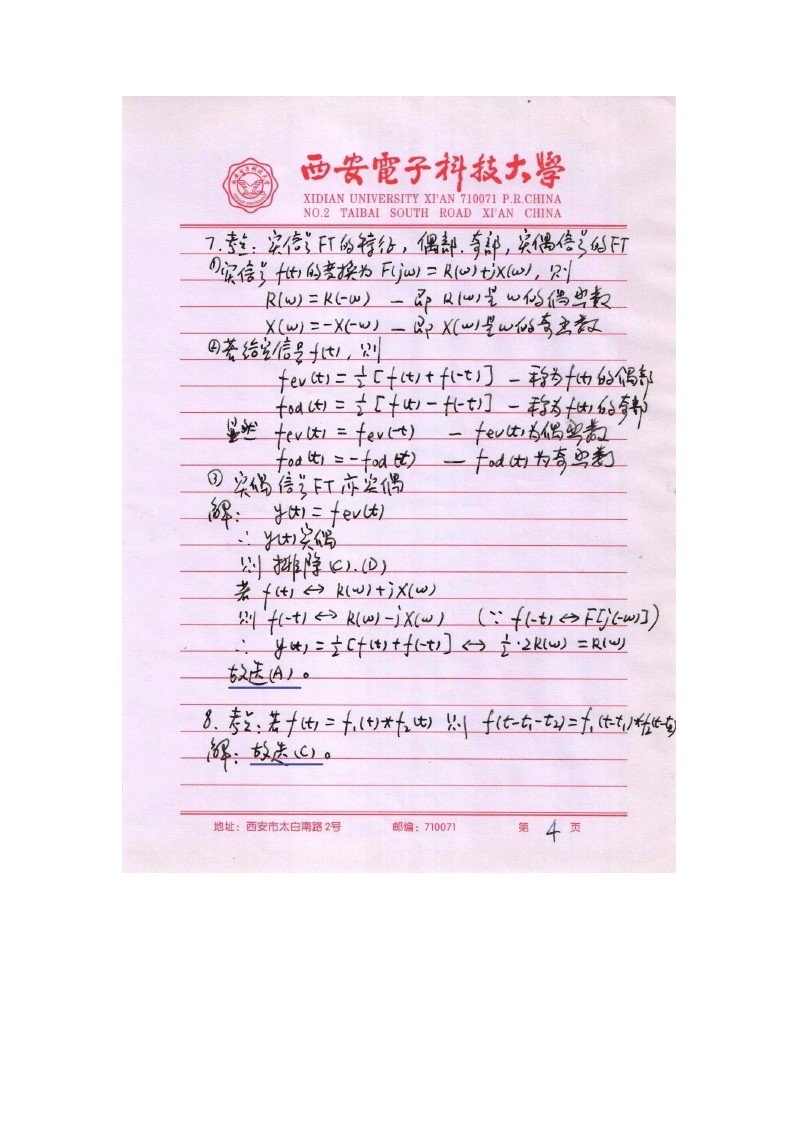 西安電子科技大學
XIDIAN UNIVERSITY XI'AN 710071 P.R.CHINA
NO.2 TAIBAI SOUTH ROAD XI'AN CHINA
7.考点:实信号FT的特征,偶部.奇部,实偶信号的FT
①实信号 f(t)的变换为 F(jω) = R(ω)+jX(ω), 则
R(ω) = R(-ω) — 即 R(ω)是ω的偶函数
X(ω) = -X(-ω) — 即 X(ω)是ω的奇函数
②若给定信号f(t), 则
fev(t) = ½ [ f(t) + f(-t) ] — 称为f(t)的偶部
fod(t) = ½ [ f(t) - f(-t) ] — 称为f(t)的奇部
显然 fev(t) = fev(-t) — fev(t)为偶函数
fod(t) = -fod(t) — fod(t)为奇函数
③ 实偶信号FT亦实偶
解: y(t) = fev(t)
∴ y(t)实偶
则 排除(C).(D)
若 f(t) ↔ R(ω)+jX(ω)
则 f(-t) ↔ R(ω)-jX(ω) (∵ f(-t) ↔ F[j(-ω)])
∴ y(t) = ½ [f(t)+f(-t)] ↔ ½·2R(ω) = R(ω)
故选(A)。
8. 考点:若 f(t) = f₁(t)*f₂(t) 则 f(t-t₁-t₂) = f₁(t-t₁)*f₂(t-t₂)
解: 故选(C)。
地址: 西安市太白南路2号 邮编: 710071 第 4 页